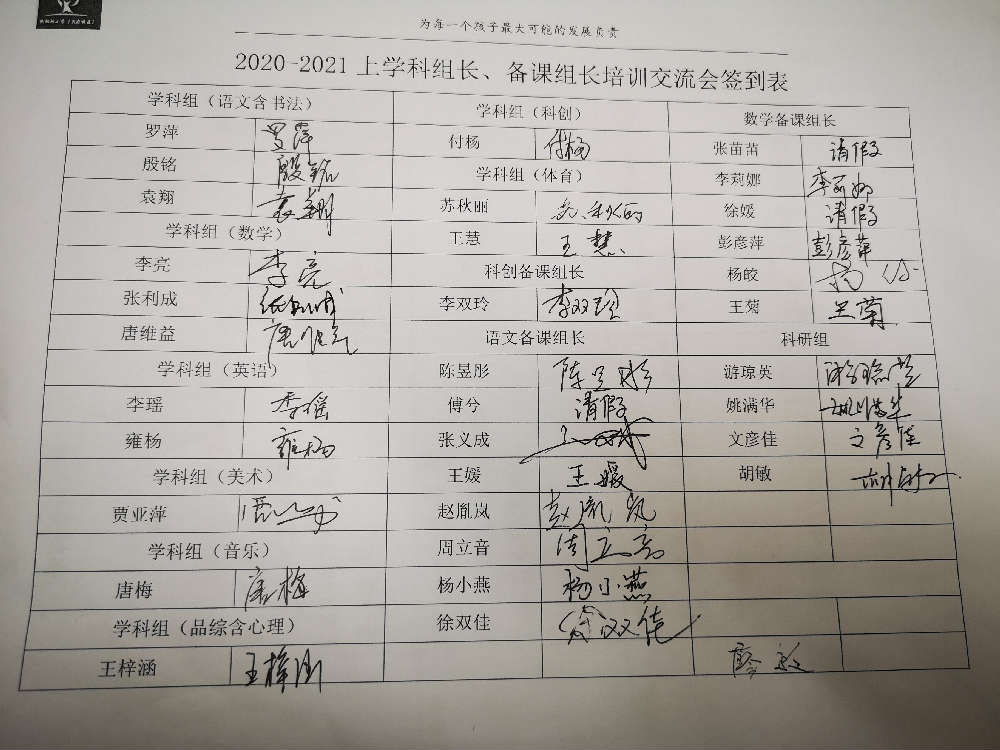 为每一个孩子最大可能的发展负责
2020-2021上学科组长、备课组长培训交流会签到表
学科组（语文含书法） 学科组（科创） 数学备课组长
罗萍 罗萍 付杨 付杨 张苗苗 请假
殷铭 殷铭 学科组（体育） 李莉娜 李莉娜
袁翔 袁翔 苏秋丽 苏秋丽 徐媛 请假
学科组（数学） 王慧 王慧 彭彦萍 彭彦萍
李亮 李亮 科创备课组长 杨皎 杨皎
张利成 张利成 李双玲 李双玲 王菊 王菊
唐维益 唐维益 语文备课组长 科研组
学科组（英语） 陈昱彤 陈昱彤 游琼英 游琼英
李瑶 李瑶 傅兮 请假 姚满华 姚满华
雍杨 雍杨 张义成 文彦佳 文彦佳
学科组（美术） 王媛 王媛 胡敏 胡敏
贾亚萍 赵胤岚 赵胤岚
学科组（音乐） 周立音 周立音
唐梅 唐梅 杨小燕 杨小燕
学科组（品综含心理） 徐双佳 徐双佳
王梓涵 王梓涵